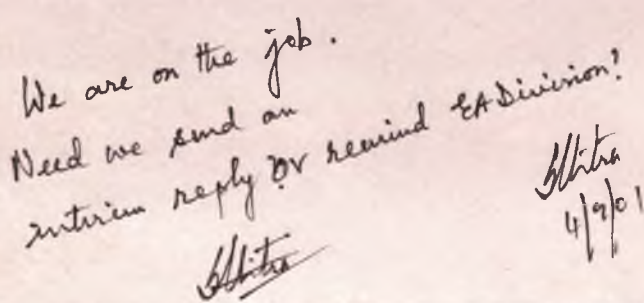 We are on the job.
Need we send an
interim reply or remind EA Division?
4/9/01